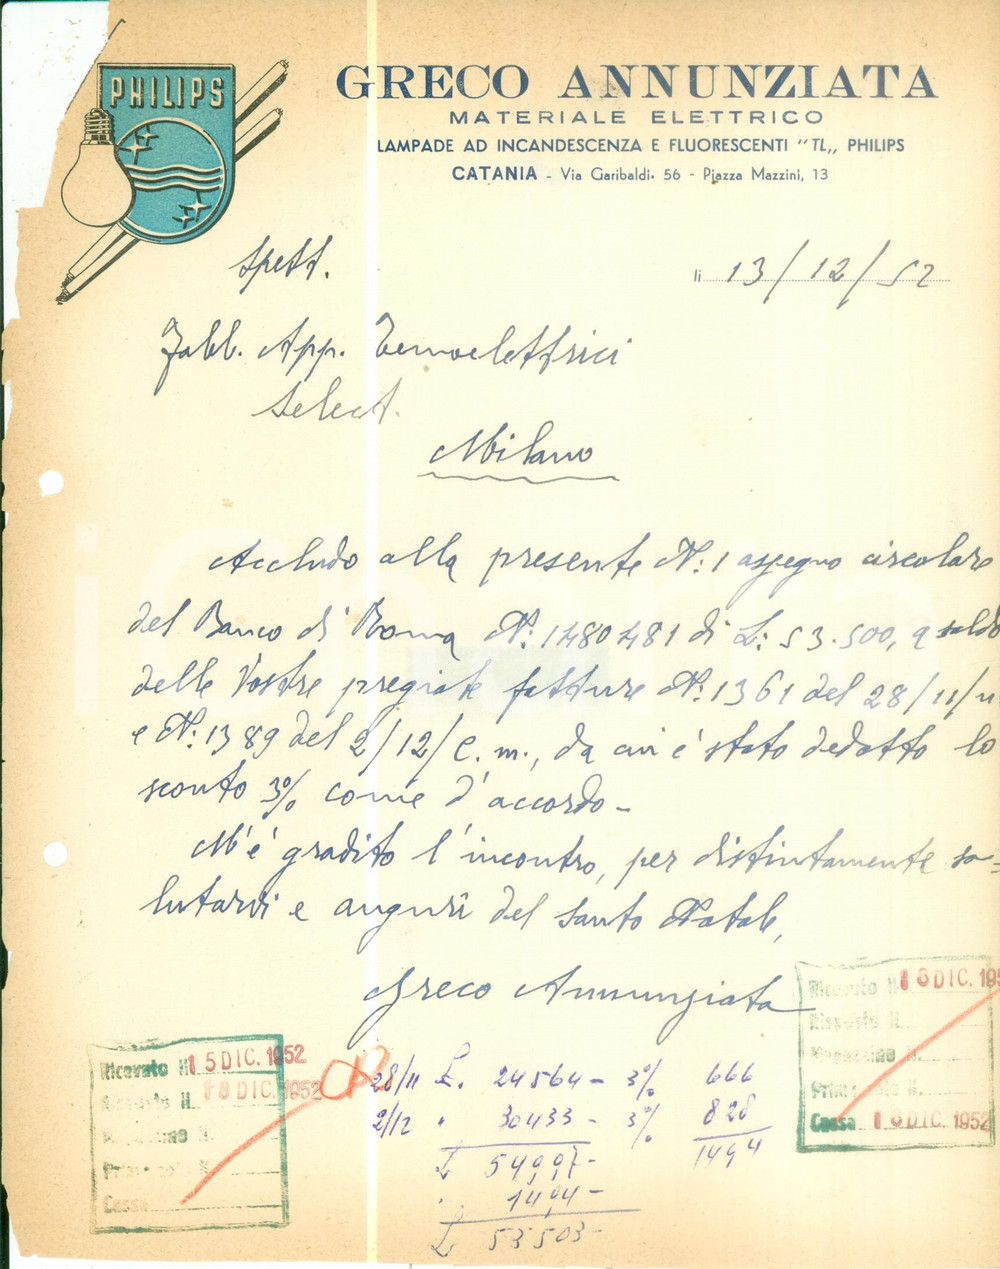 PHILIPS
GRECO ANNUNZIATA
MATERIALE ELETTRICO
LAMPADE AD INCANDESCENZA E FLUORESCENTI "TL„ PHILIPS
CATANIA - Via Garibaldi, 56 - Piazza Mazzini, 13
Spett.
li 13/12/52
Fabb. App. Termoelettrici
Select.
Milano
Accludo alla presente N: 1 assegno circolare
del Banco di Roma N: 1480481 di L: 53.500, a saldo
delle Vostre pregiate fatture N: 1361 del 28/11/u
e N: 1389 del 2/12/c.m., da cui è stato dedotto lo
sconto 3% come d'accordo -
M'è gradito l'incontro, per distintamente sa=
lutarvi e auguri del Santo Natale,
Greco Annunziata
Ricevuto N. 16 DIC. 195
Risposto N.
Magazzino N.
Cassa 18 DIC. 1952
Ricevuto N. 15 DIC. 1952
Risposto N. 18 DIC. 1952
Cassa
28/11 L. 24564 - 3% 666
2/12 " 30433 - 3% 828
L 54997 - 1494
" 1494 -
L 53503 -